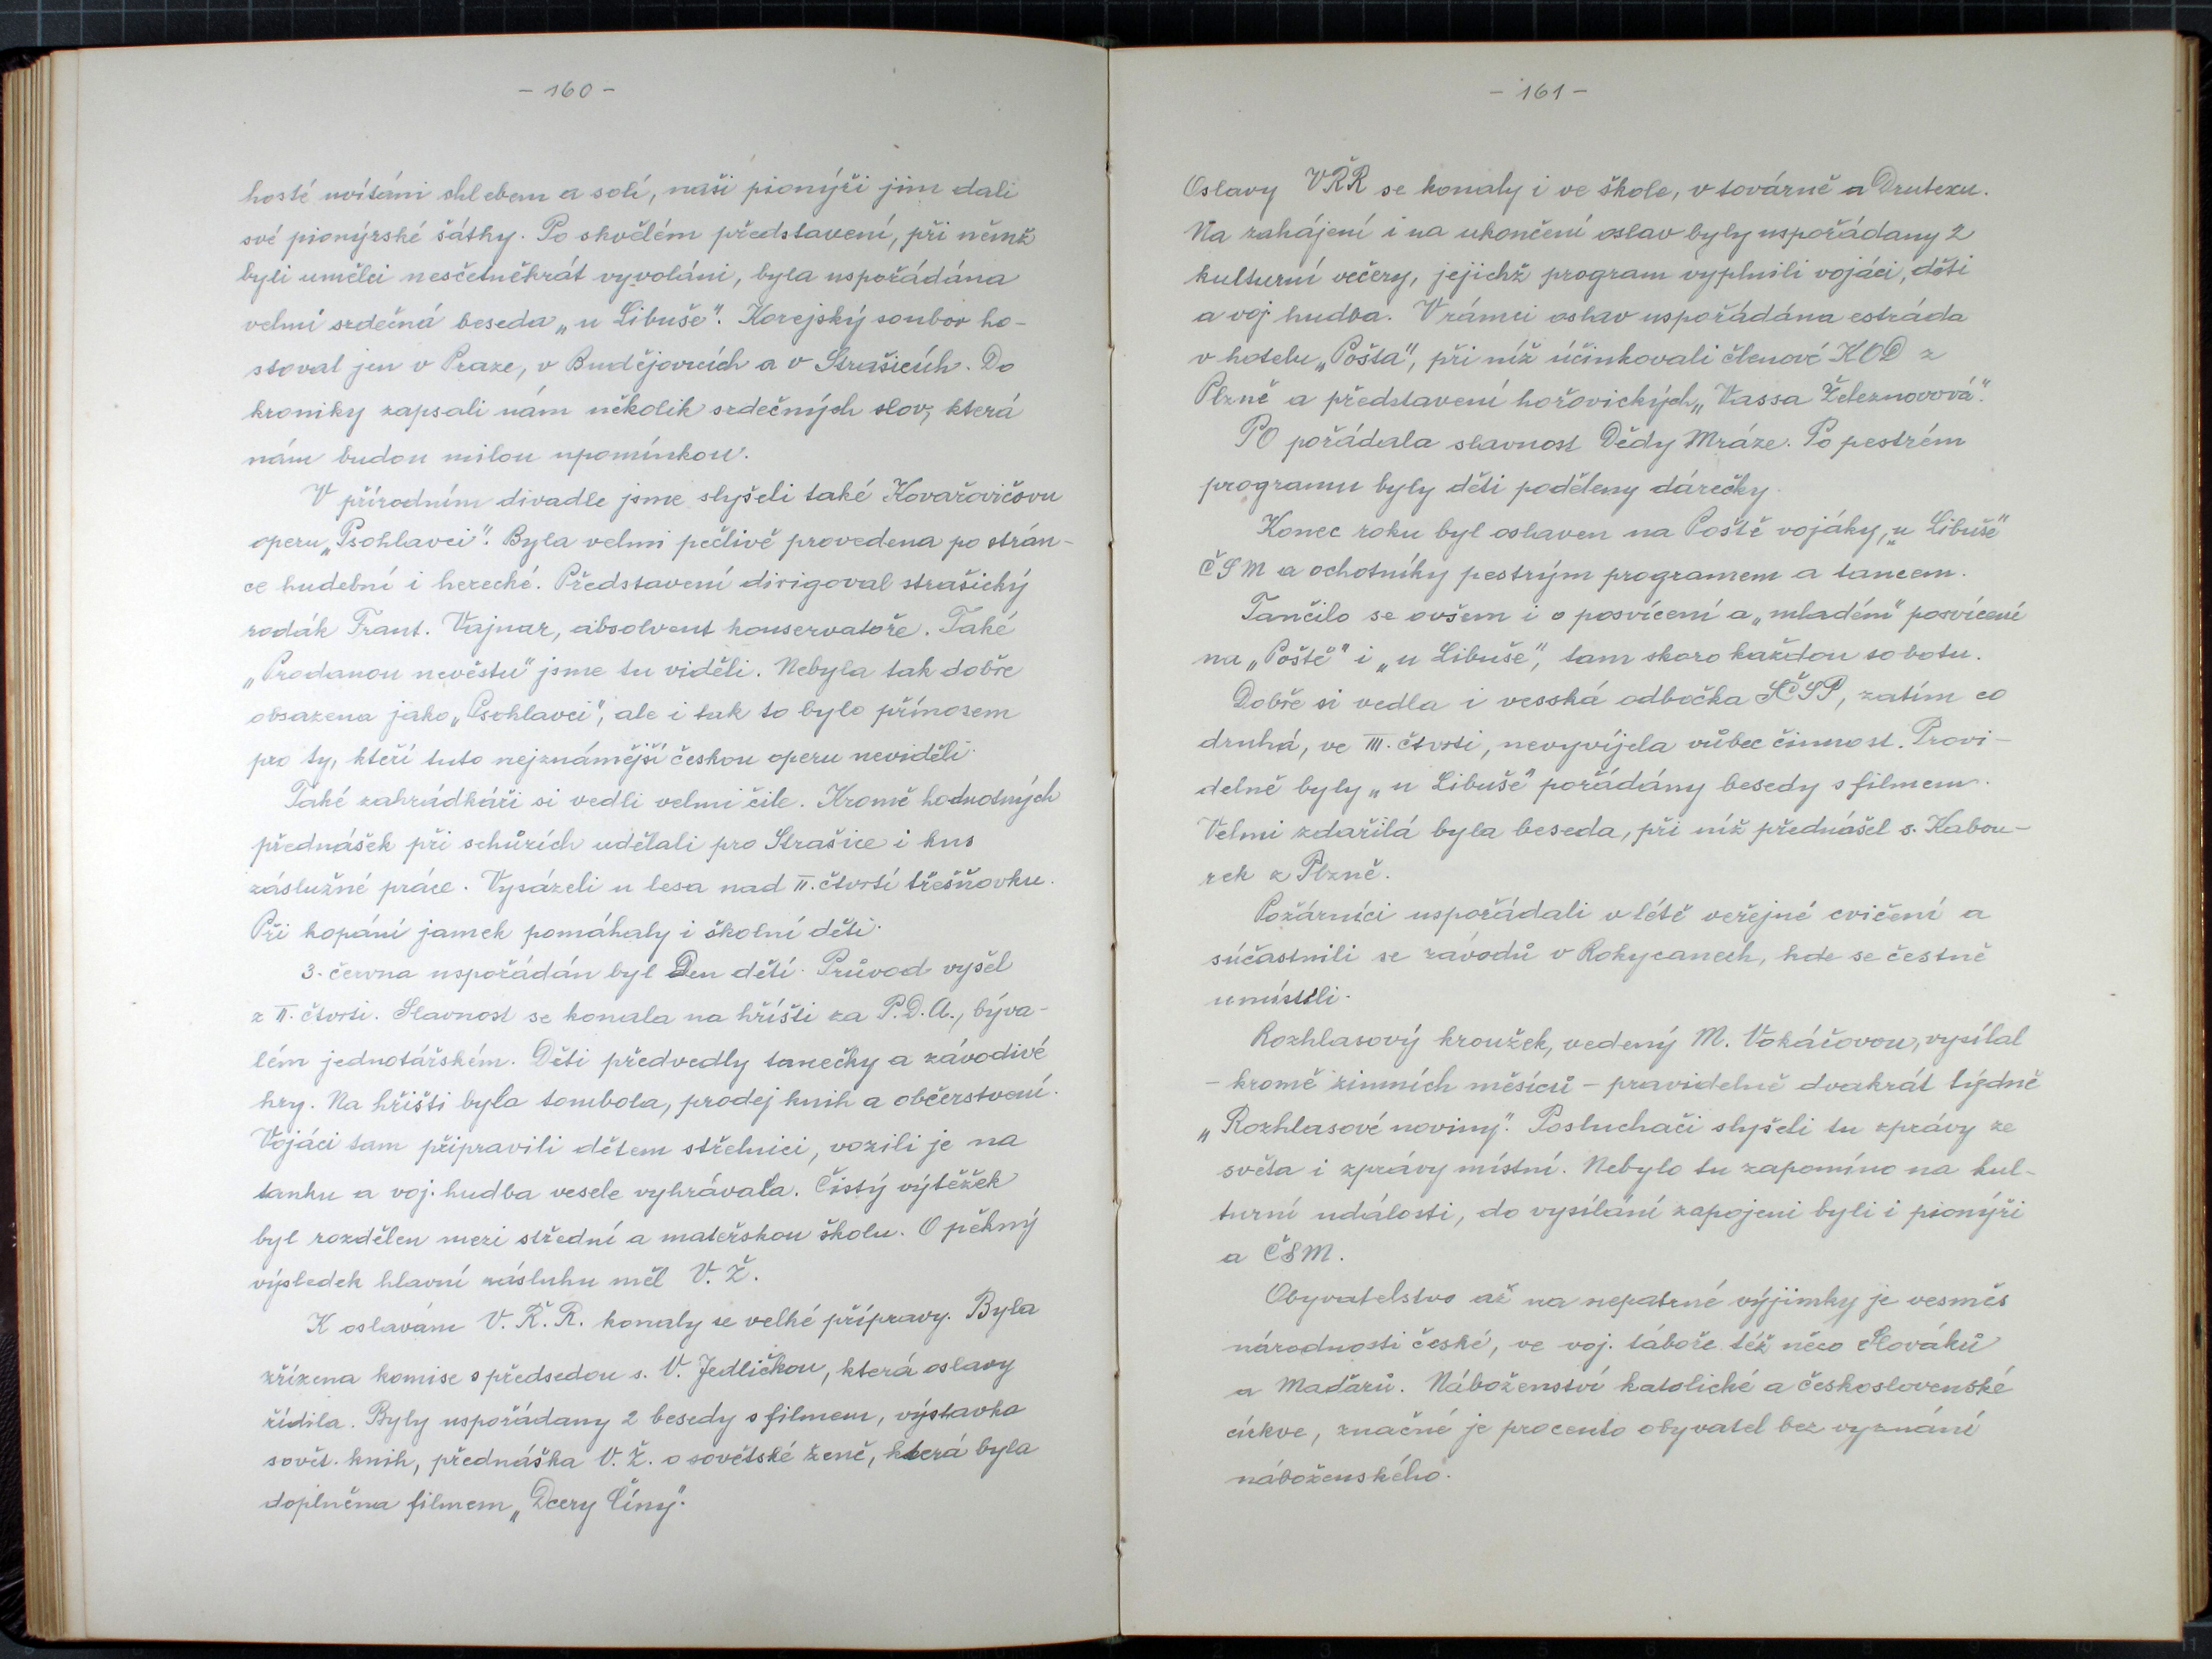 - 160 -
hosté uvítáni chlebem a solí, naši pionýři jim dali
své pionýrské šátky. Po skvělém představení, při němž
byli umělci nesčetněkrát vyvoláni, byla uspořádána
velmi srdečná beseda „u Libuše". Korejský soubor ho-
stoval jen v Praze, v Budějovicích a v Strašicích. Do
kroniky zapsali nám několik srdečných slov, která
nám budou milou upomínkou.
V přírodním divadle jsme slyšeli také Kovařovičovu
operu „Psohlavci". Byla velmi pečlivě provedena po strán-
ce hudební i herecké. Představení dirigoval strašický
rodák Frant. Vajnar, absolvent konservatoře. Také
„Prodanou nevěstu" jsme tu viděli. Nebyla tak dobře
obsazena jako „Psohlavci", ale i tak to bylo přínosem
pro ty, kteří tuto nejznámější českou operu neviděli.
Také zahrádkáři si vedli velmi čile. Kromě hodnotných
přednášek při schůzích udělali pro Strašice i kus
záslužné práce. Vysázeli u lesa nad II. čtvrtí třešňovku.
Při kopání jamek pomáhaly i školní děti.
3. června uspořádán byl Den dětí. Průvod vyšel
z II. čtvrti. Slavnost se konala na hřišti za P.D.A., býva-
lém jednotářském. Děti předvedly tanečky a závodivé
hry. Na hřišti byla tombola, prodej knih a občerstvení.
Vojáci tam připravili dětem střelnici, vozili je na
tanku a voj. hudba vesele vyhrávala. Čistý výtěžek
byl rozdělen mezi střední a mateřskou školu. O pěkný
výsledek hlavní zásluhu měl V. Ž.
K oslavám V. Ř. R. konaly se velké přípravy. Byla
zřízena komise s předsedou s. V. Jedličkou, která oslavy
řídila. Byly uspořádany 2 besedy s filmem, výstavka
sovět. knih, přednáška V. Ž. o sovětské ženě, která byla
doplněna filmem „Dcery Číny".
- 161 -
Oslavy VŘR se konaly i ve škole, v továrně a Drutexu.
Na zahájení i na ukončení oslav byly uspořádany 2
kulturní večery, jejichž program vyplnili vojáci, děti
a voj. hudba. V rámci oslav uspořádána estráda
v hotelu „Pošta", při níž účinkovali členové KOD z
Plzně a představení hořovických „Vassa Železnovová".
PO pořádala slavnost Dědy Mráze. Po pestrém
programu byly děti poděleny dárečky.
Konec roku byl oslaven na Poště vojáky, „u Libuše"
ČSM a ochotníky pestrým programem a tancem.
Tančilo se ovšem i o posvícení a „mladém" posvícení
na „Poště" i „u Libuše", tam skoro každou sobotu.
Dobře si vedla i vesská odbočka SČSP, zatím co
druhá, ve III. čtvrti, nevyvíjela vůbec činnost. Pravi-
delně byly „u Libuše" pořádány besedy s filmem.
Velmi zdařilá byla beseda, při níž přednášel s. Kabou-
rek z Plzně.
Požárníci uspořádali v létě veřejné cvičení a
súčastnili se závodů v Rokycanech, kde se čestně
umístili.
Rozhlasový kroužek, vedený M. Vokáčovou, vysílal
- kromě zimních měsíců - pravidelně dvakrát týdně
„Rozhlasové noviny". Posluchači slyšeli tu zprávy ze
světa i zprávy místní. Nebylo tu zapomíno na kul-
turní události, do vysílání zapojeni byli i pionýři
a ČSM.
Obyvatelstvo až na nepatrné výjimky je vesměs
národnosti české, ve voj. táboře též něco Slováků
a Maďarů. Náboženství katolické a československé
církve, značné je procento obyvatel bez vyznání
náboženského.